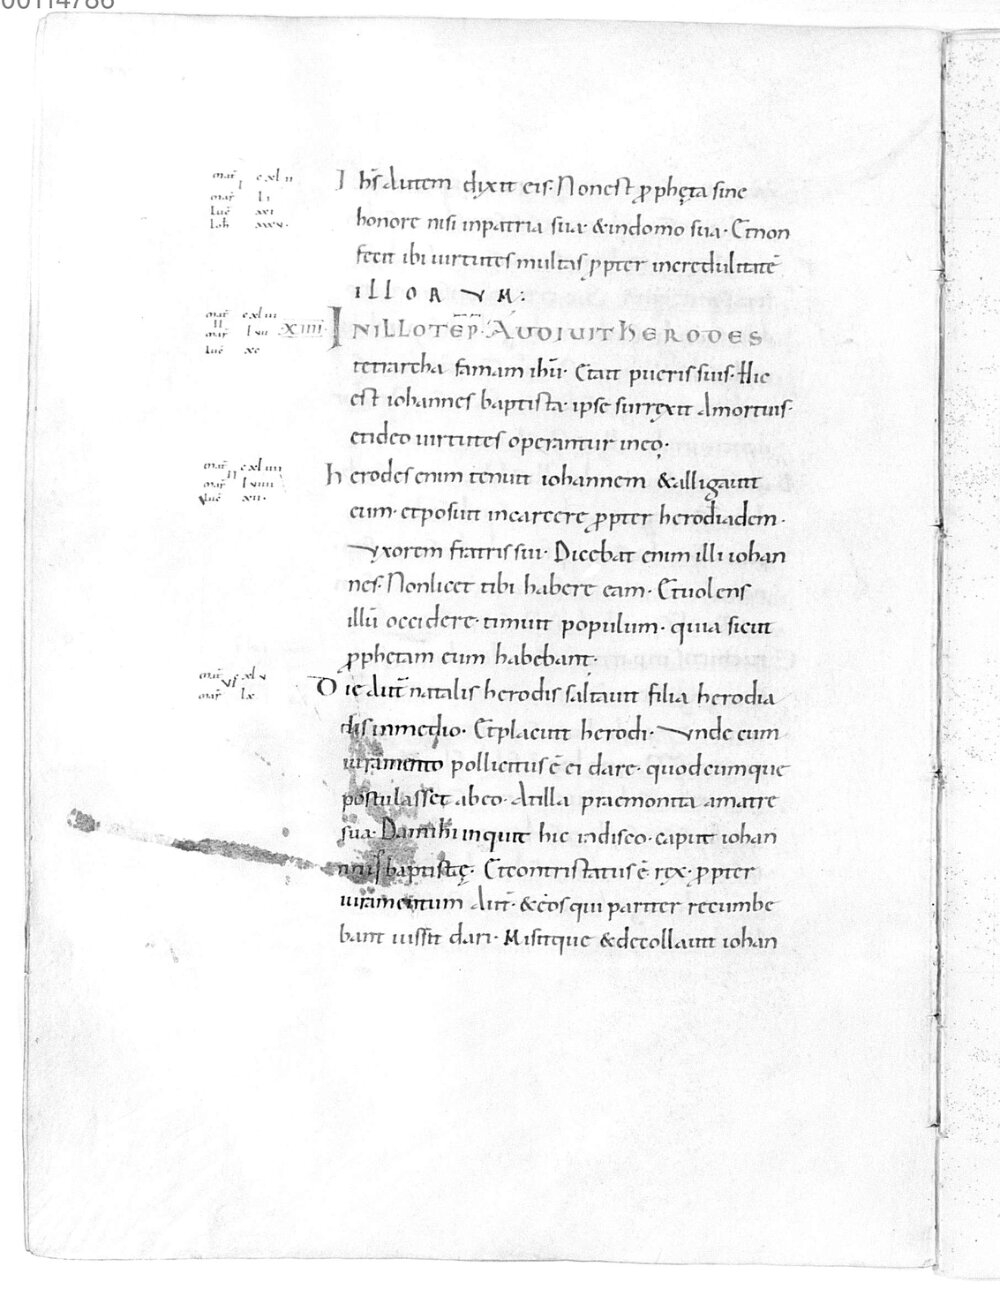 00114786
mař cxlii
I
mař li
Luč xxi
Ioh xxxv·
Ihs autem dixit eis· Non est ꝓphęta sine
honore nisi inpatria sua· &indomo sua· Etnon
fecit ibi uirtutes multas ꝓpter incredulitatē
ILLORVM:
mař cxliii
II
mař lvii
Luč xc
XIIII· INILLOTEP̄R· AUDIUIT HERODES
tetrarcha famam ihū· Etait pueris suis· Hic
est iohannes baptista· ipse surrexit amortuis·
etideo uirtutes operantur ineo·
mař cxliiii
II
mař lviii
Luč xii·
Herodes enim tenuit iohannem &alligauit
eum· etposuit incarcere ꝓpter herodiadem·
Vxorem fratris sui· Dicebat enim illi iohan
nes· Nonlicet tibi habere eam· Etuolens
illū occidere· timuit populum· quia sicut
ꝓphetam eum habebant·
mař cxlv
VI
mař lx
Die aut̄ natalis herodis saltauit filia herodia
dis inmedio· Etplacuit herodi· Vnde cum
iuramento pollicitus ē ei dare· quodcumque
postulasset abeo· Atilla praemonita amatre
sua· Damihi inquit hic indisco· caput iohan
nis baptistę· Etcontristatus ē rex· ꝓpter
iuramentum aut̄· &eos qui pariter recumbe
bant iussit dari· Misitque &decollauit iohan